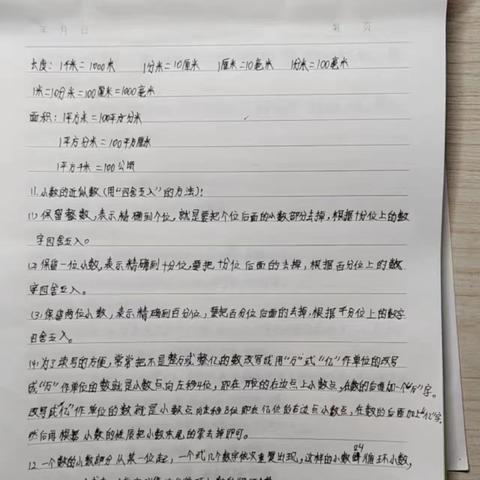 年 月 日 第 页
长度：1千米=1000米 1分米=10厘米 1厘米=10毫米 1分米=100毫米
1米=10分米=100厘米=1000毫米
面积：1平方米=100平方分米
1平方分米=100平方厘米
1平方千米=100公顷
11.小数的近似数（用“四舍五入”的方法）：
(1)保留整数，表示精确到个位，就是要把个位后面的小数部分去掉，根据十分位上的数
字四舍五入。
(2)保留一位小数，表示精确到十分位，要把十分位后面的去掉，根据百分位上的数
字四舍五入。
(3)保留两位小数，表示精确到百分位，要把百分位后面的去掉，根据千分位上的数字
四舍五入。
(4)为了读写的方便，常常把不是整万或整亿的数改写成用“万”或“亿”作单位的改写
成“万”作单位的数就是小数点向左移4位，即在万位的右边点上小数点，在数的后面加一个“万”字。
改写成“亿”作单位的数就是小数点向左移8位即在亿位的右边点小数点，在数的后面加上“亿”字。
然后再根据小数的性质把小数末尾的零去掉即可。
12.一个数的小数部分从某一位起，一个或几个数字依次重复出现，这样的小数 循环小数，